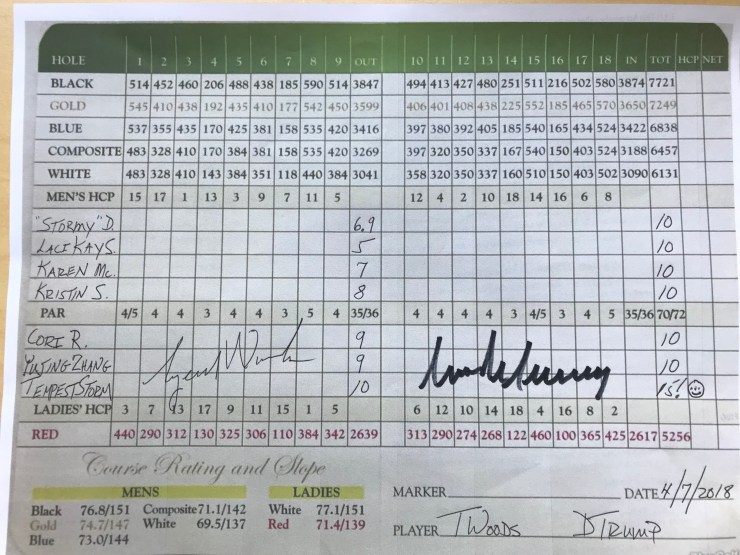 HOLE 1 2 3 4 5 6 7 8 9 OUT 10 11 12 13 14 15 16 17 18 IN TOT HCP NET
BLACK 514 452 460 206 488 438 185 590 514 3847 494 413 427 480 251 511 216 502 580 3874 7721
GOLD 545 410 438 192 435 410 177 542 450 3599 406 401 408 438 225 552 185 465 570 3650 7249
BLUE 537 355 435 170 425 381 158 535 420 3416 397 380 392 405 185 540 165 434 524 3422 6838
COMPOSITE 483 328 410 170 384 381 158 535 420 3269 397 320 350 337 167 540 150 403 524 3188 6457
WHITE 483 328 410 143 384 351 118 440 384 3041 358 320 350 337 160 510 150 403 502 3090 6131
MEN'S HCP 15 17 1 13 3 9 7 11 5 12 4 2 10 18 14 16 6 8
"STORMY" D. 6.9 10
LACI KAY S. 5 10
KAREN Mc. 7 10
KRISTIN S. 8 10
PAR 4/5 4 4 3 4 4 3 5 4 35/36 4 4 4 4 3 4/5 3 4 5 35/36 70/72
CORI R. 9 10
YUJING ZHANG 9 10
TEMPEST STORM 10 15!
LADIES' HCP 3 7 13 17 9 11 15 1 5 6 12 10 14 18 4 16 8 2
RED 440 290 312 130 325 306 110 384 342 2639 313 290 274 268 122 460 100 365 425 2617 5256
Course Rating and Slope
MENS LADIES
Black 76.8/151 Composite 71.1/142 White 77.1/151
Gold 74.7/147 White 69.5/137 Red 71.4/139
Blue 73.0/144
MARKER DATE 4/7/2018
PLAYER T WOODS D TRUMP